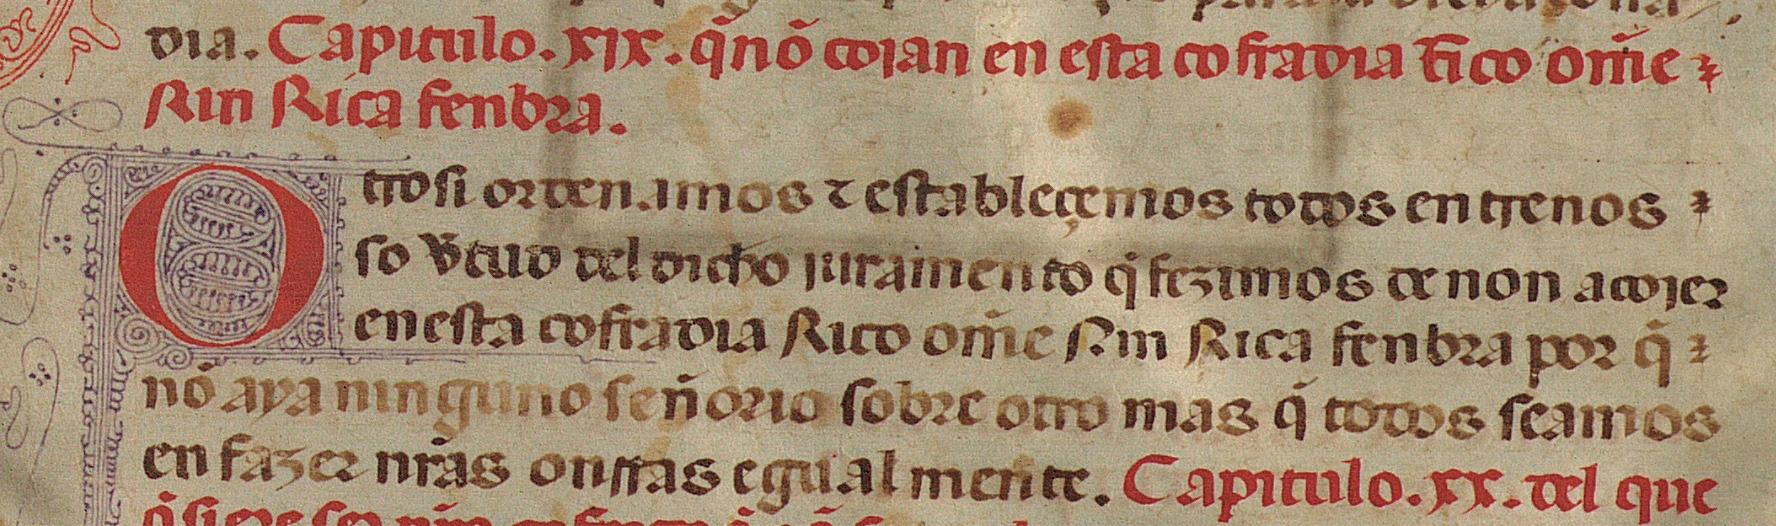 dia. Capitulo. xix. q̃ nõ coian en esta cofradia Rico om̃e
nin Rica fenbra.
Otrosi ordenamos τ estableçemos todos entrenos
so v̾tud del dicho iuramento q̃ fezimos de non acojer
en esta cofradia Rico om̃e nin Rica fenbra por q̃
nõ aya ninguno señorio sobre otro mas q̃ todos seamos
en fazer nr̃as onrras egual mente. Capitulo. xx. del que